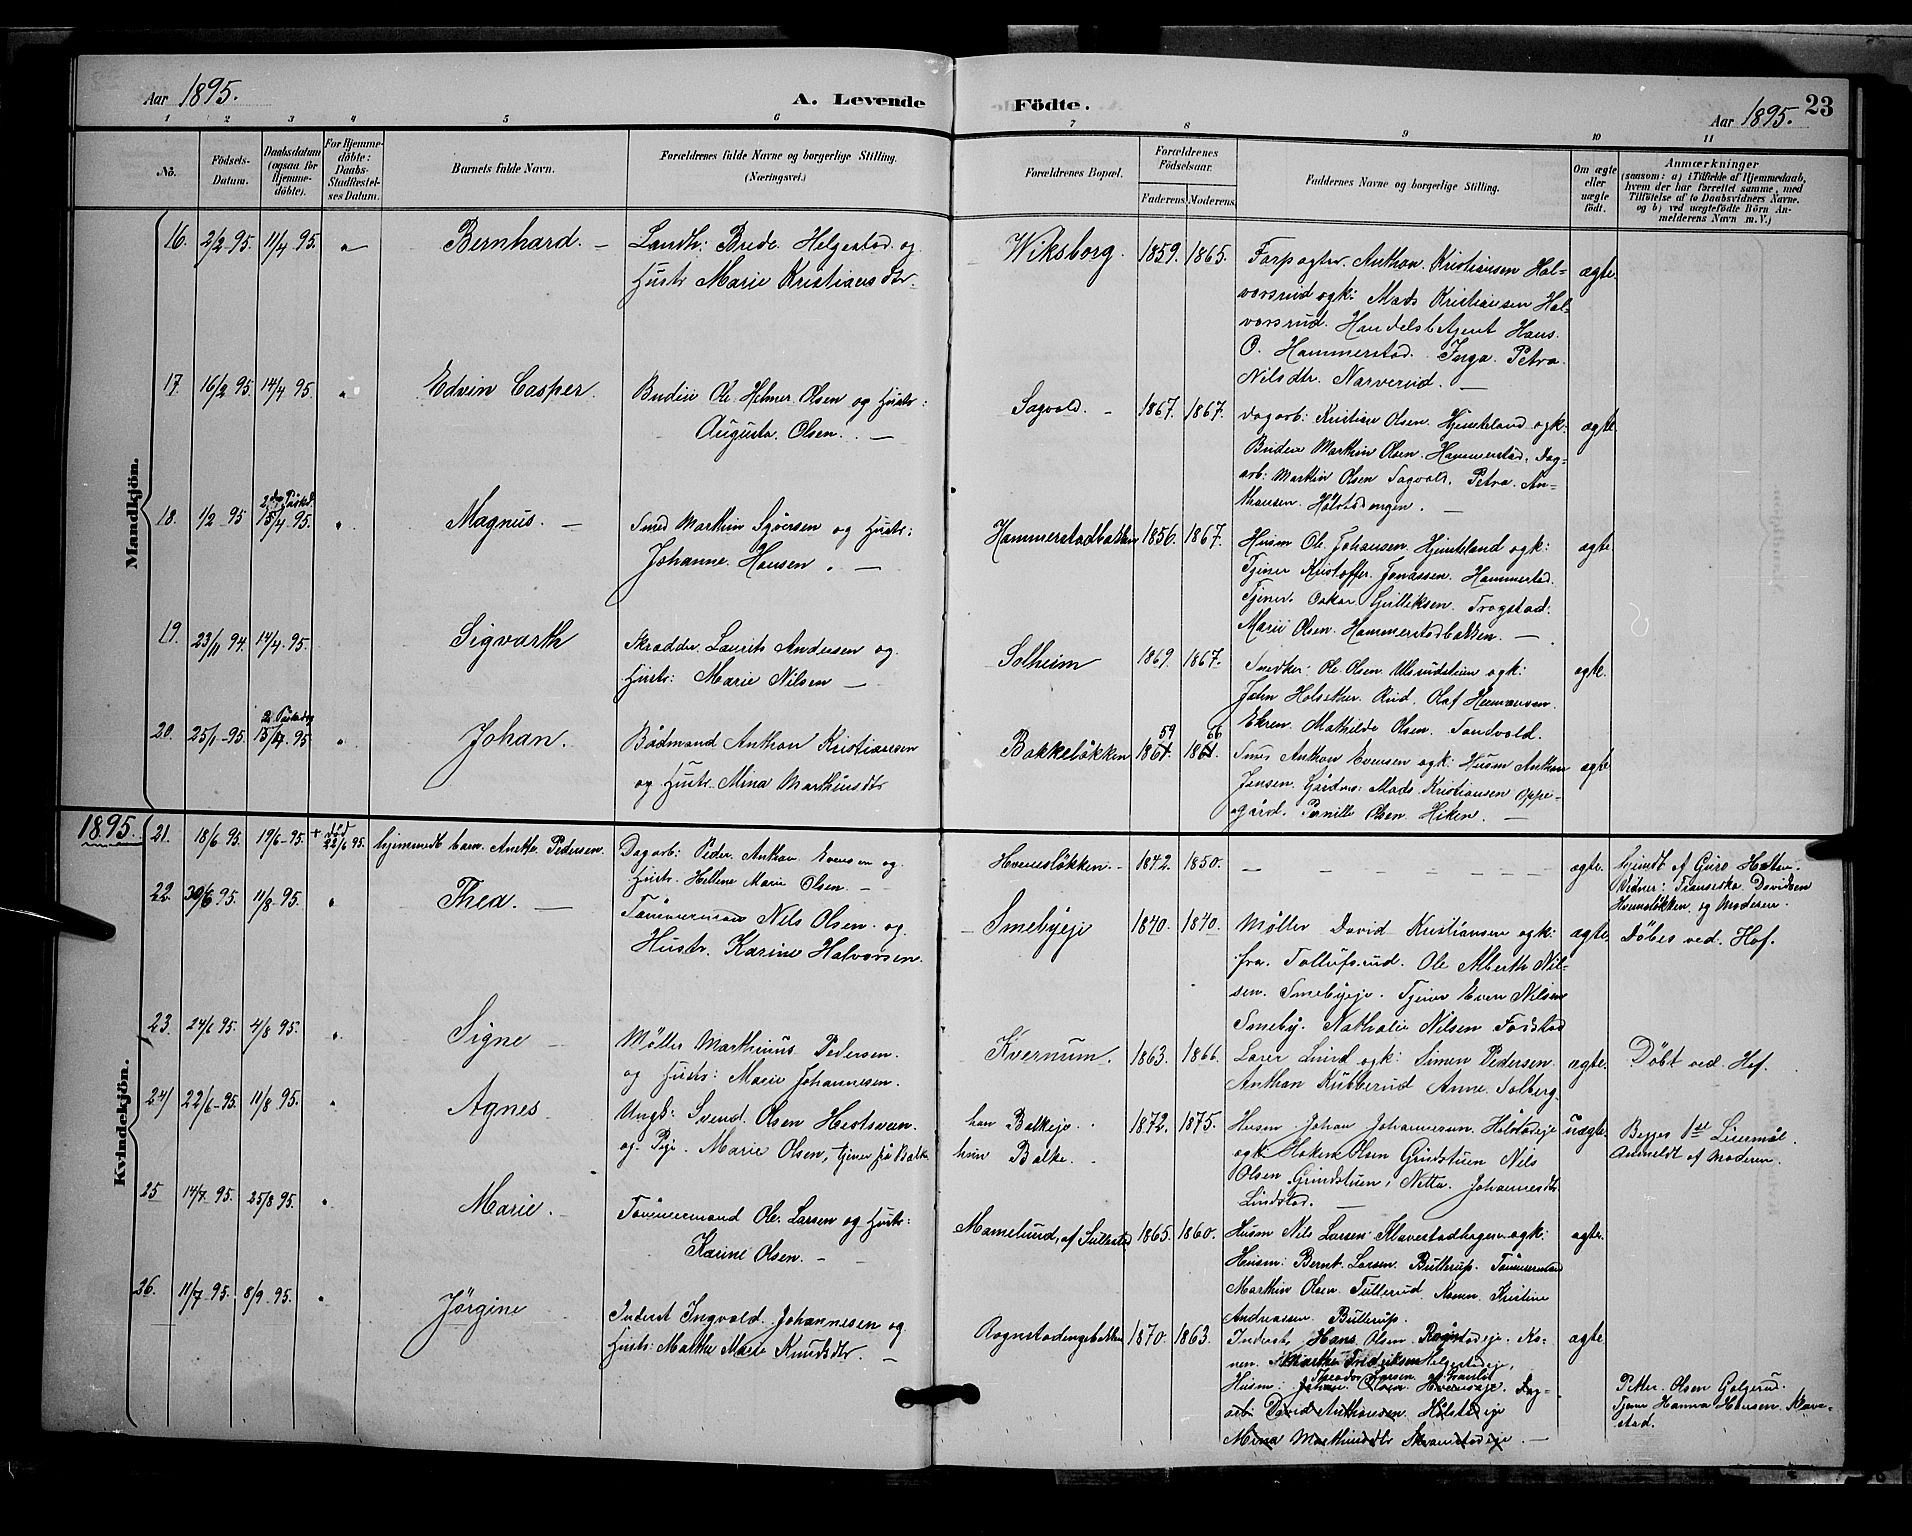 Aar 1895.
A. Levende
Födte.
Aar 1895.
23
1 2 3 4 5 6 7 8 9 10 11
No.
Födsels-
Datum.
Daabsdatum
(ogsaa for
Hjemme-
döbte).
For Hjemme-
döbte:
Daabs-
Stadfæstel-
ses Datum.
Barnets fulde Navn.
Forældrenes fulde Navne og borgerlige Stilling.
(Næringsvei.)
Forældrenes Bopæl.
Forældrenes
Födselsaar.
Faderens. Moderens.
Faddernes Navne og borgerlige Stilling.
Om ægte
eller
uægte
födt.
Anmærkninger
(saasom: a) i Tilfælde af Hjemmedaab,
hvem der har forrettet samme, med
Tilföielse af to Daabsvidners Navne,
og b) ved uægtefödte Börn An-
melderens Navn m. V.)
Mandkjön.
16. 2/2 - 95. 11/4 - 95. " Bernhard. —
Landh: Brede Helgestad og
Hustr Marie Kristiansdtr.
Wiksborg. 1859. 1865.
Forpagter Anthon Kristiansen Hal-
vorsrud ogk: Mads Kristiansen Hal-
vorsrud. Handelsbetjent Hans
O. Hammerstad. Inga Petra
Nilsdtr. Narverud. —
ægte.
17. 16/2 95. 14/4 95. " Edvin Casper.
Budeie Ole Helmer Olsen og Hustr:
Augusta Olsen. —
Sagvold. - 1867. 1867.
Dagarb: Kristian Olsen Hjimteland ogk:
Budeie Marthin Olsen Hammerstad. Dag-
arb: Marthin Olsen Sagvold. Petra An-
thonsen Holstadengen. —
ægte.
18. 1/2 - 95 2den Paaskd. 15/4 95. " Magnus. —
Smed Marthin Syversen og Hustr:
Johanne Hansen. —
Hammerstadbakken 1856. 1867.
Husm Ole Johansen Hjimteland ogk:
Tjener Kristoffer Jonassen Hammerstad.
Tjener Oskar Gulliksen Trogstad.
Marie Olsen Hammerstadbakken. —
ægte.
19. 23/11 94. 14/4 - 95. Sigvarth
Skrædder Laurits Andersen og
Hustr: Marie Nilsen —
Solheim 1869. 1867.
Snedker: Ole Olsen ogk:
John Holsether Rud. Olaf Hermansen
Ekren. Mathilde Olsen Sandvold.
ægte.
20. 25/1 - 95. 2. Paaskedag 15/4 - 95 " Johan.
Bådmand Anthon Kristiansen
og Hustr. Mina Marthinsdtr
Bakkeløkken 59 1861. 66 1861.
Smed Anthon Evensen ogk: Husm Anthon
Jensen. Gårdm: Mads Kristiansen Oppe-
gård. Pernille Olsen Hiken. —
ægte
1895.
Kvindekjön.
21. 18/6 95. 19/6 - 95. + død 22/6 95. hjemmedt Anette Pedersen.
Dagarb: Peder Anthon Evensen og
Hustr. Hellene Marie Olsen. —
Hvemsløkken. - 1842. 1850. — — — — ægte.
hjemdt af Guro
Vidner: Franseska Davidsen
Hvemsløkken og Moderen.
22. 30/6 95. 11/8 - 95. " Thea. —
Tømmermand Nils Olsen og
Hustr. Karine Halvorsen.
Smebyeje 1840. 1840.
Møller David Kristiansen ogk:
fra Tollufsrud. Ole Alberth Nil-
sen Smebyeje. Tjener Even Nilsen
Smeby. Nathalie Nilsen Fodstad
ægte.
Döbes ved Hof.
23. 24/6 - 95. 4/8 95. " Signe —
Møller Marthinus Pedersen
og Hustr: Marie Johannesen.
Kvernum. 1863. 1866.
Lærer Lund ogk: Simen Pedersen
Anthon Kubberud Anne Solberg
ægte.
Döbt ved Hof.
24 22/6 - 95. 11/8 95. " Agnes
Ungk: Svend Olsen Hestsveen
og Pige Marie Olsen, tjener på Balke
han Balkeje.
hun Balke. 1872. 1875.
Husm Johan Johannesen Holstadeje
ogk Håken Olsen Grindstuen Nils
Olsen Grindstuen, Netta Johannesdtr
Lindstad. —
uægte
Begges 1ste Leiermål.
Anmeldt af Moderen.
25 14/7 95. 25/8 95. " Marie.
Tømmermand Ole Larsen og Hustr:
Karine Olsen —
Mamelund, af Sullestad 1865. 1860.
Husm Nils Larsen Klavestadhagen ogk:
Husm: Bernt Larsen Butterup. Tømmermand
Marthin Olsen Tullerud. Konen Kristine
Andreassen Butterup.
ægte.
26. 11/7 - 95. 8/9 - 95. " Jörgine
Inderst Ingvald Johannesen og
Hustr: Mathe Marie Knudsdtr. —
Rognstadengebakken 1870. 1863.
Inderst Hans Olsen Rognstadeje. Ko-
nen Marthe Fredriksen Helgestadeje,
Theodor Larsen
Husm: Johan Olsen Hvemseje. Dag-
arb: David Anthonsen Holstadeje
Mina Marthinsdtr Skramstadeje. —
ægte
Petter Olsen Galgerud.
Tjener Hanna Hansen Klave-
stad.